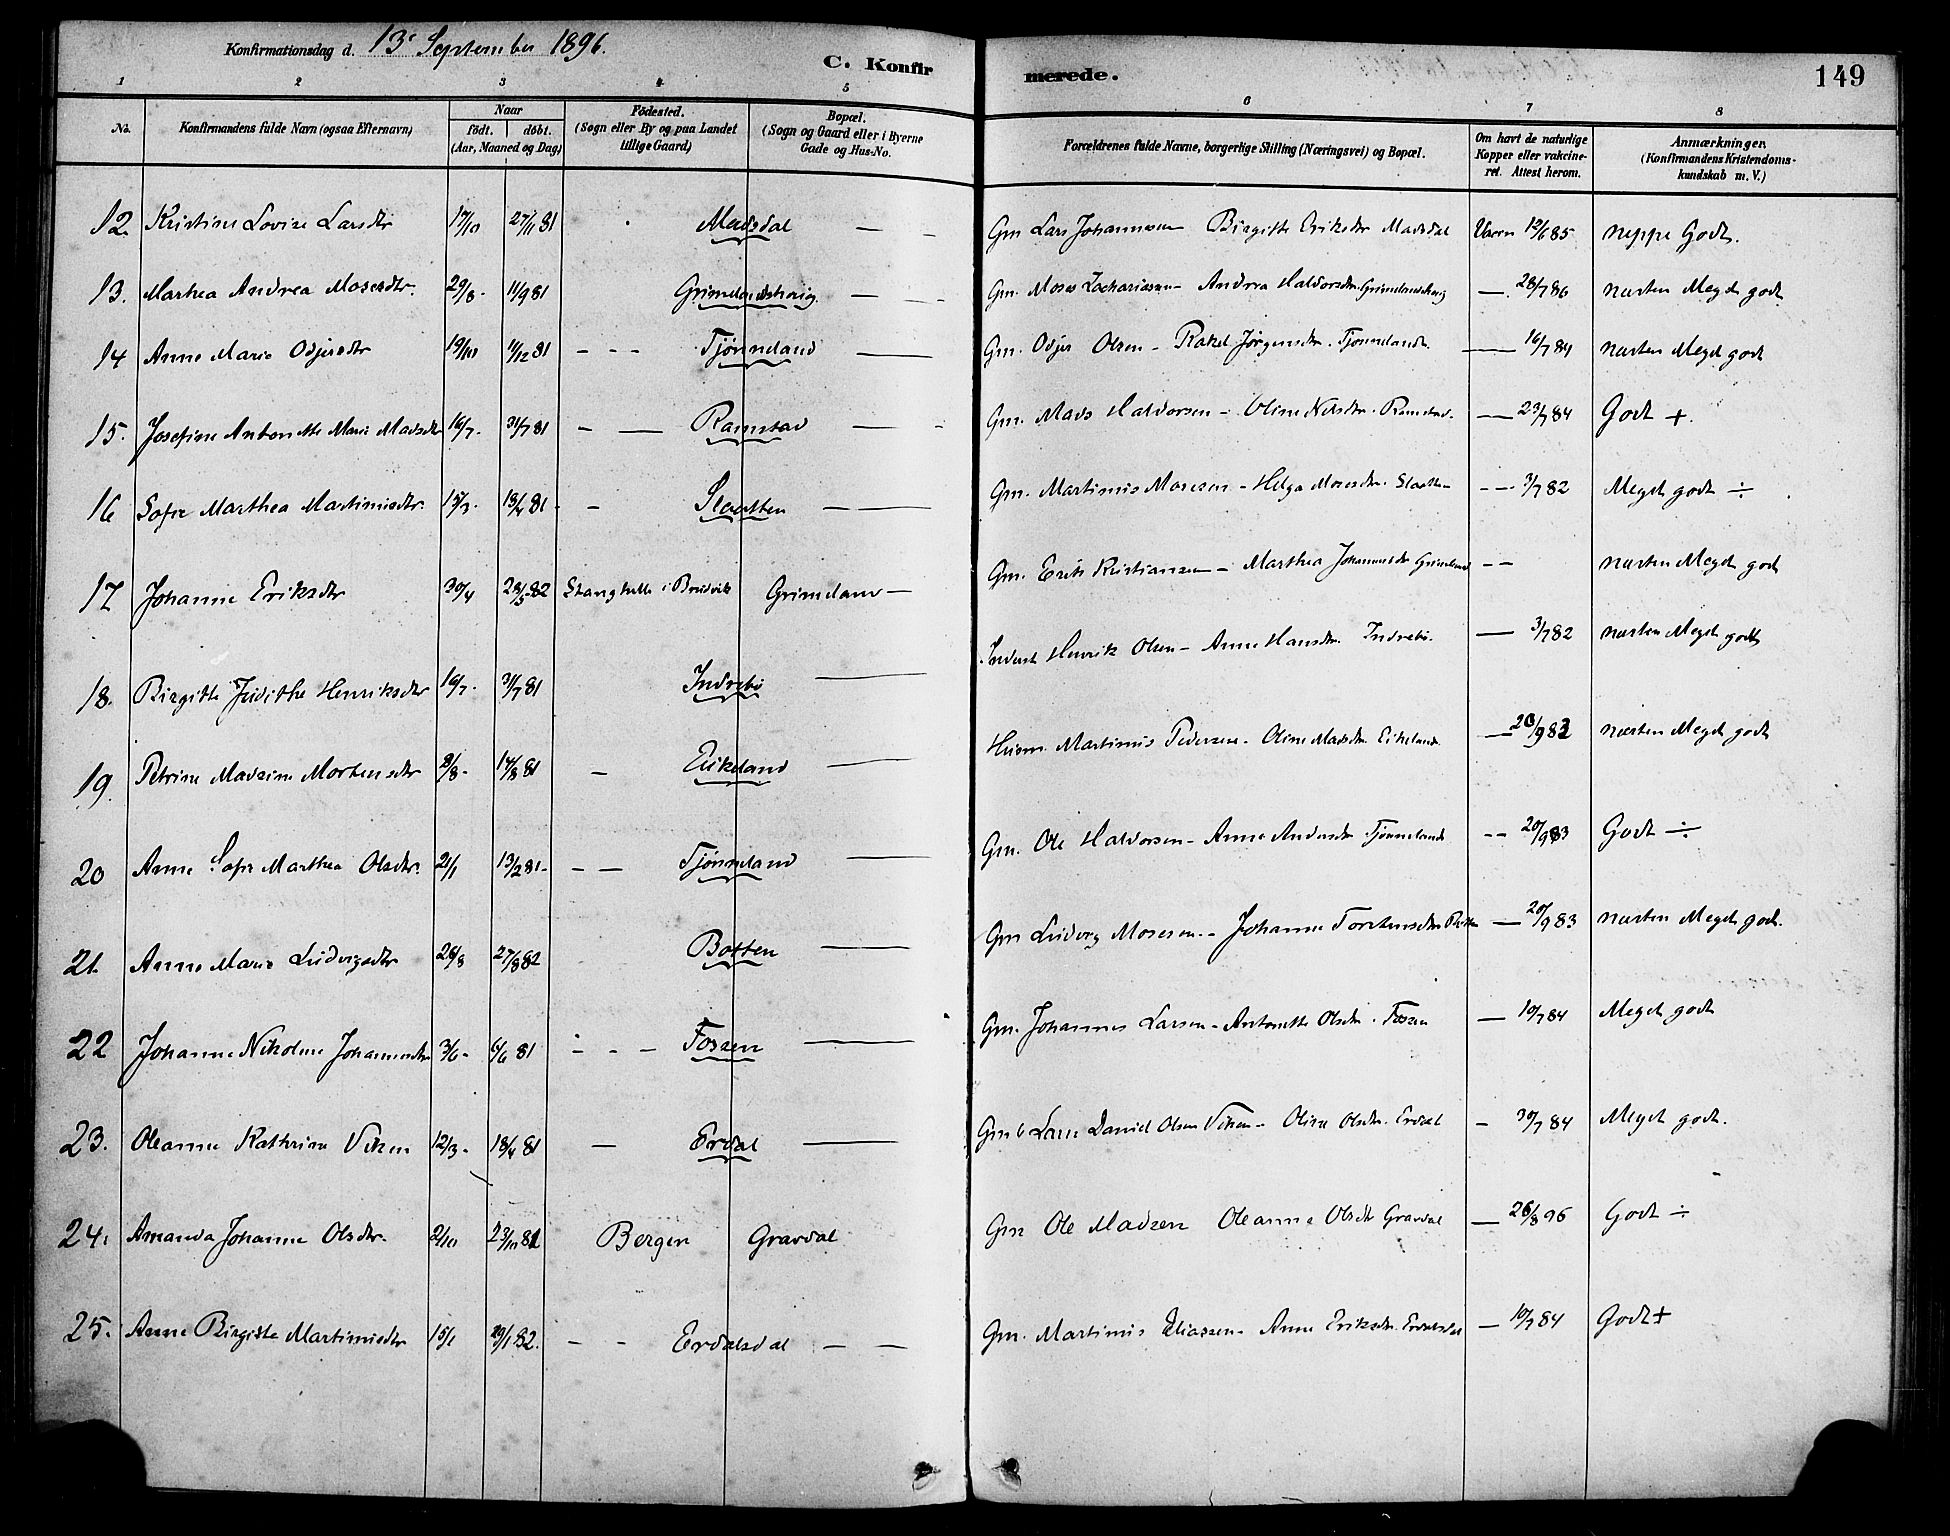 Konfirmationsdag d. 13 September 1896.
C. Konfirmerede.
149
1 2 3 4 5 6 7 8
No.
Konfirmandens fulde Navn (ogsaa Efternavn)
Naar
födt. döbt.
(Aar, Maaned og Dag)
Födested.
(Sogn eller By og paa Landet
tillige Gaard)
Bopæl.
(Sogn og Gaard eller i Byerne
Gade og Hus-No.
Forældrenes fulde Navne, borgerlige Stilling (Næringsvei) og Bopæl.
Om havt de naturlige
Kopper eller vakcine-
ret. Attest herom.
Anmærkninger.
(Konfirmandens Kristendoms-
kundskab m. V.)
12. Kristine Lovise Larsdtr 17/10 27/11 81 Madsdal — - Gm Lars Johannesen Birgitte Eriksdtr Madsdal Vaccn 12/6 85 neppe Godt.
13. Marthea Andrea Mosesdtr. 29/8 - 11/9 81 — - Gm. Moses Zachariassen - Andrea Haldorsdtr —. 28/7 86 næsten Meget godt
14 Anne Marie Odjersdtr 19/10 11/12 81 - - - Tjønneland — Gm. Odjer Olsen - Rakel Jørgensdtr. Tjønneland. — 16/7 84 næsten Meget godt
15. Josefine Antonette Marie Madsdtr 16/7. 31/7 81 - — Ramstad — - Gm. Mads Haldorsen - Oline Nilsdtr. Ramstad. — 23/7 84 Godt +.
16 Sofie Marthea Martinusdtr. 15/3. 18/4 81 - - Slaatten - — Gm. Martinus Mosesen - Helga Mosesdtr. Slaatten - - - 3/7 82 Meget godt ÷
17 Johanne Eriksdtr 30/4 28/5 82 Stanghelle i Bruvik Grimeland — Gm. Erik Kristiansen - Marthea Johannesdtr Grimeland - - næsten Meget godt
18. Birgitte Judithe Henriksdtr 16/7. 31/7 81 Indrebø — Henrik Olsen - Anne Hansdtr. Indrebø. — 3/7 82 næsten Meget godt
19. Petrine Madsine Mortensdtr 8/8 - 14/8 81 - Eikeland — Husm. Martinus Pedersen - Oline Madsdtr. Eikeland. — 20/9 83 næsten Meget godt
20 Anne Sofie Marthea Olsdtr. 21/1 13/2 81 - - - Tjønneland — Gm. Ole Haldorsen - Anne Andersdtr Tjønneland - - 20/9 83 Godt ÷
21. Anne Marie Ludvigsdtr 26/8 27/8 82 Botten — Gm Ludvig Mosesen - Johanne Torstensdtr Botten — 20/9 83 næsten Meget godt.
22 Johanne Nikoline Johannesdtr 3/6 - 6/6 81 - - - Fossen — Gm. Johannes Larsen - Antonette Olsdtr. Fossen — 10/7 84 Meget godt
23. Oleanne Kathrine Viken 12/3 - 18/4 81 — Erdal — Gm Lars Daniel Olsen Viken - Oline Olsdtr. Erdal - 30/7 84 Meget godt.
24. Amanda Johanne Olsdtr. 2/10 23/10 81 Bergen Gravdal Gm Ole Madsen Oleanne Olsdtr Gravdal — 26/8 96 Godt ÷
25. Anne Birgitte Martinusdtr 15/1 29/1 82. - - Erdalsdal - - Gm. Martinus Eliassen - Anne Eriksdtr. Erdalsdal — 10/7 84 Godt +